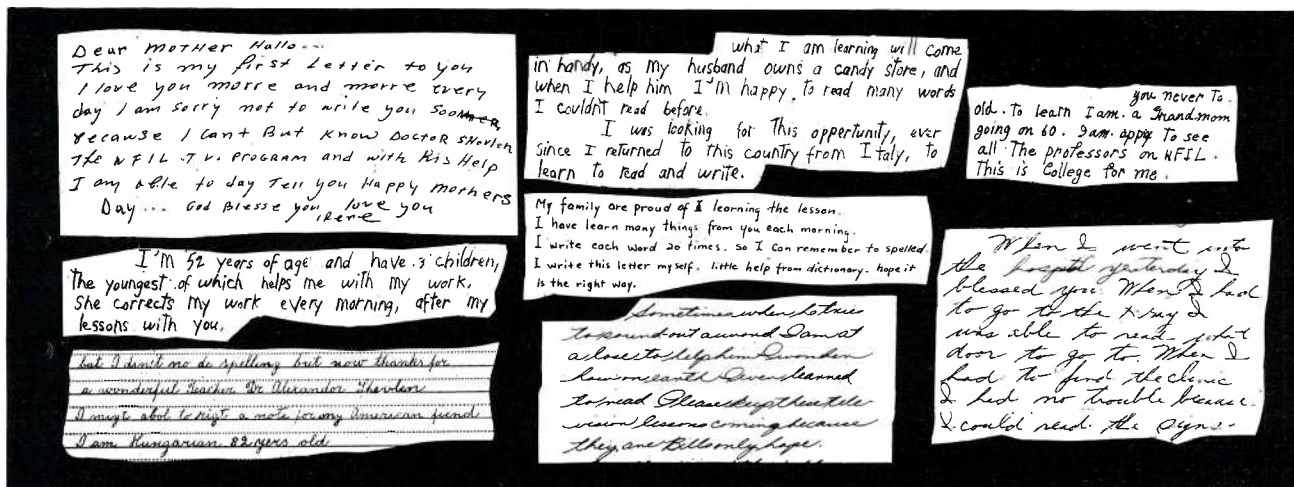 Dear MOTHER Hallo...
This is my first Letter to you
I love you morre and morre every
day I am sorry not to write you sooner,
because I cant But know DOCTOR SHevlin
The WFIL .T.V. PROGRAM and with his Help
I am able to day Tell you Happy mothers
Day... God Blesse you love you
Irene
I'M 52 years of age and have 3 children,
the youngest of which helps me with my work.
She corrects my work every morning, after my
lessons with you.
but I din't no de spelling but now thanks for
a wonderful Teacher Dr Alexandor Shevlin
I migt abol to rigt a note for my American fiend
I am Hungarian 82 yers old
what I am learning will come
in handy, as my husband owns a candy store, and
when I help him I'M happy. to read many words
I couldn't read before.
I was looking for This opportunity, ever
since I returned to this country from Italy, to
learn to read and write.
My family are proud of I learning the lesson.
I have learn many things from you each morning.
I write each word 20 times. so I can remember to spelled.
I write this letter myself. little help from dictionary. hope it
is the right way.
Sometimes when he tries
to sound out a word I am at
a lose to help him I wonder
how on earth I ever learned
to read Please keep these tele
vision lessons coming because
they are Bills only hope.
you never to
old. to learn I am. a Grandmom
going on 60. I am. appy To see
all The professors on WFIL.
This is College for me.
When I went into
the hospital yesterday I
blessed you. When I had
to go to the x ray I
was able to read what
door to go to. When I
had to find the clinic
I had no trouble because
I could read the signs.